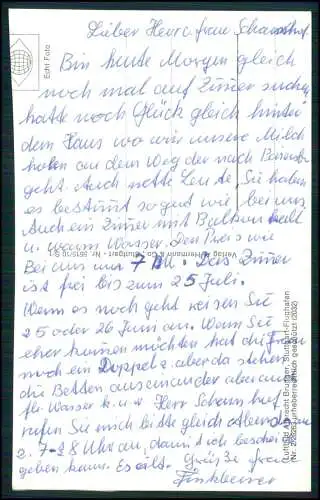 Lieber Herr u. frau Scharnhof.
Bin heute Morgen gleich
noch mal auf Zimer suchen
hatte noch Glück gleich hinter
dem Haus wo wir unsere Milch
holen an dem Weg der nach
geht. Auch nette Leute. Sie haben
es bestimt so gut wie bei uns
Auch ein Zimer mit Balkon kalt
u. warm Wasser. Den Preis wie
Bei uns nur 7 DM. Das Zimer
ist frei bis zum 25 Juli.
Wenn es noch geht reisen Sie
25 oder 26 Juni an. Wenn Sie
eher kommen möchten hat die Frau
noch ein Doppelz. aber da stehen
die Betten auseinander aber auch
fl. Wasser k. u. w. Herr Scharnhof
rufen Sie mich bitte gleich abends an
z. 7-8 Uhr an, damit ich bescheid
geben kann. Es eilt. Grüße frau
Echt Foto
Verlag Schöllhorn &Co. Stuttgart - Nr. 5615/10 S
Luftbild Albrecht Brugger, Stuttgart-Flughafen